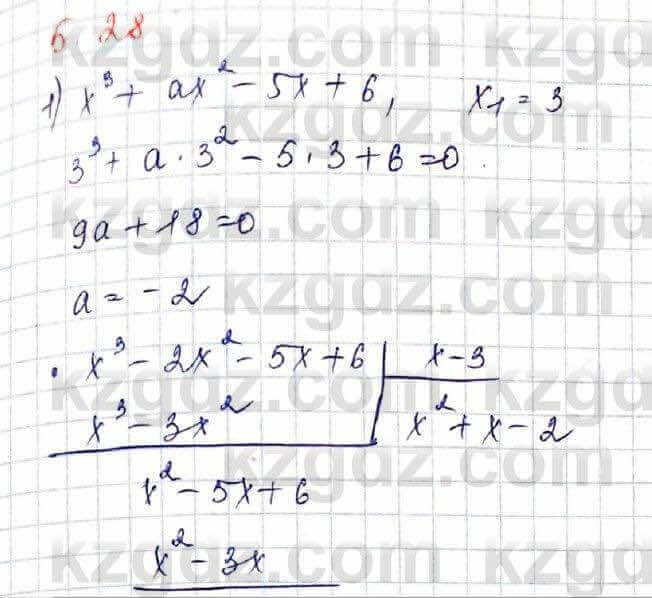 5.28
1) x³ + ax² - 5x + 6, x₁ = 3
3³ + a · 3² - 5 · 3 + 6 = 0
9a + 18 = 0
a = -2
x³ - 2x² - 5x + 6 | x - 3
x³ - 3x² | x² + x - 2
x² - 5x + 6
x² - 3x
kzgdz.com